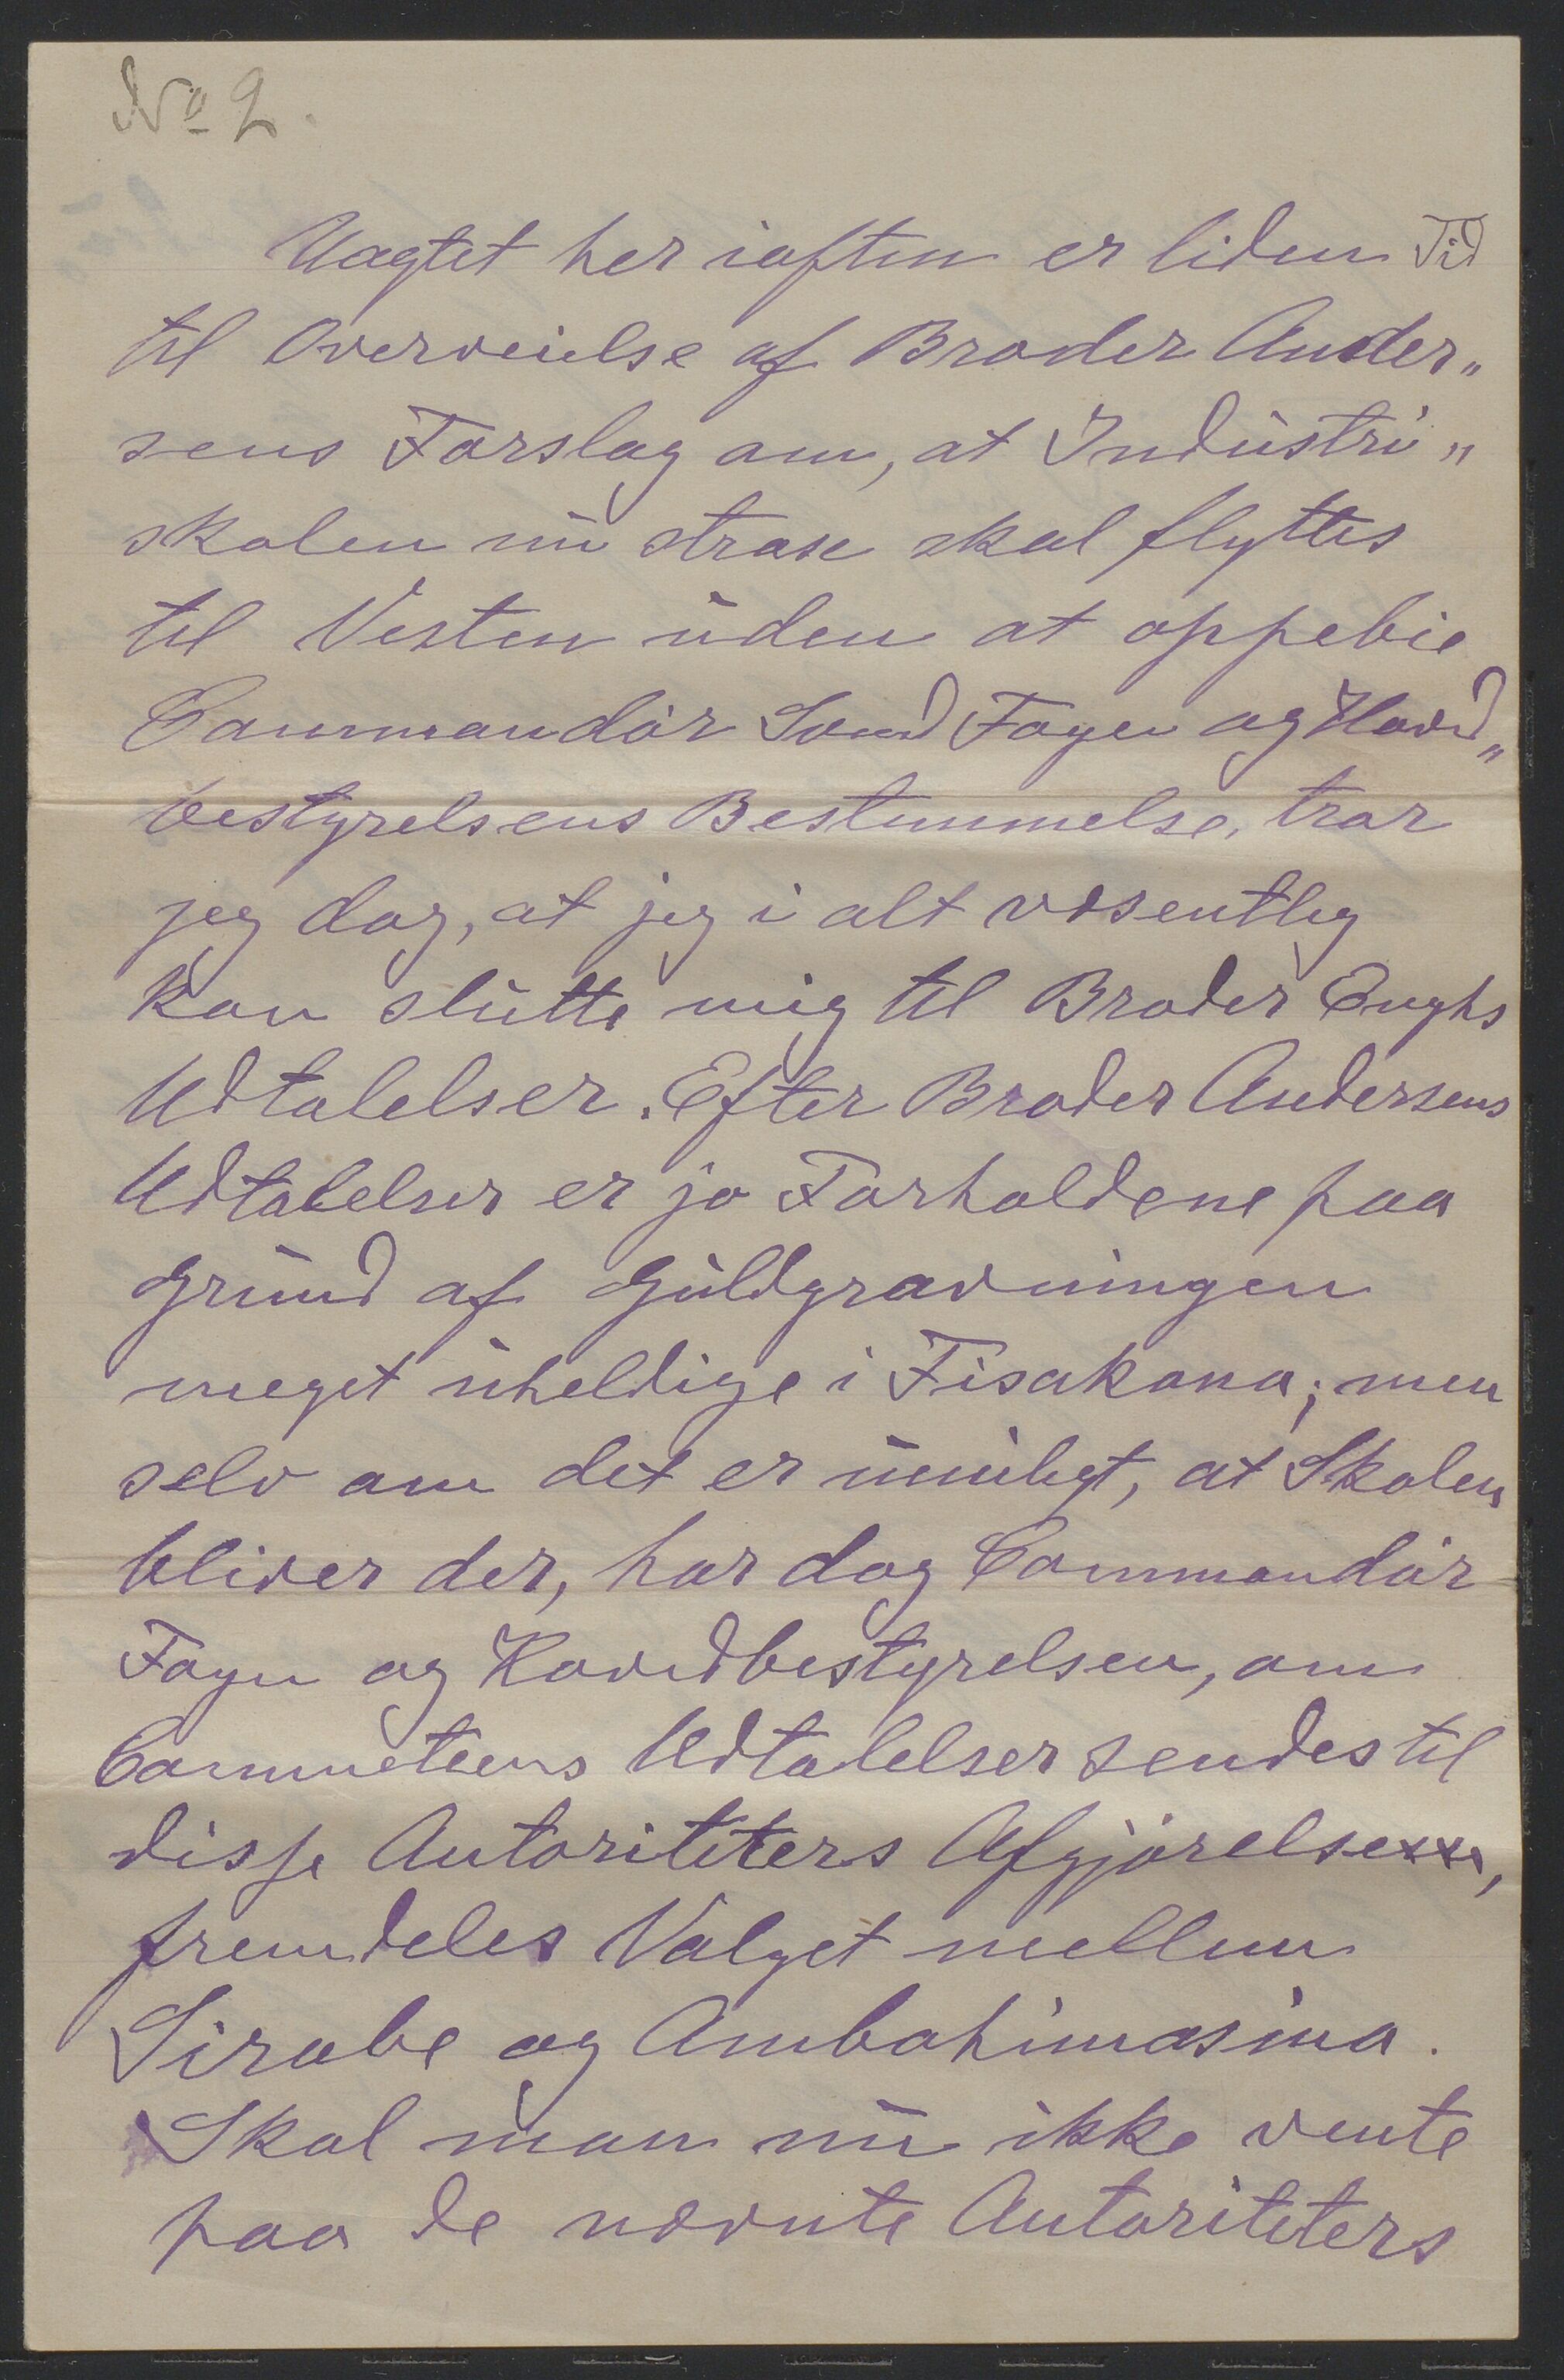 No 2.
Uagtet her iaften er liden Tid
til Overveielse af Broder Ander„
sens Forslag om, at Industri„
skolen nu strax skal flyttes
til Vesten uden at oppebie
Commandör Svend Foyn og Hoved„
bestyrelsens Bestemmelse, tror
jeg dog, at jeg i alt væsentlig
kan slutte mig til Broder Enghs
Udtalelser. Efter Broder Andersens
Udtalelser er jo Forholdene paa
Grund af Guldgravningen
meget uheldige i Fisakana; men
selv om det er umuligt, at Skolen
bliver der, har dog Commandör
Foyn og Hovedbestyrelsen, om
Commeteens Udtalelser sendes til
disse Autoriteters Afgjörelse,
fremdeles Valget mellem
Sirabe og Ambohimasina.
Skal man nu ikke vente
paa de nævnte Autoriteters